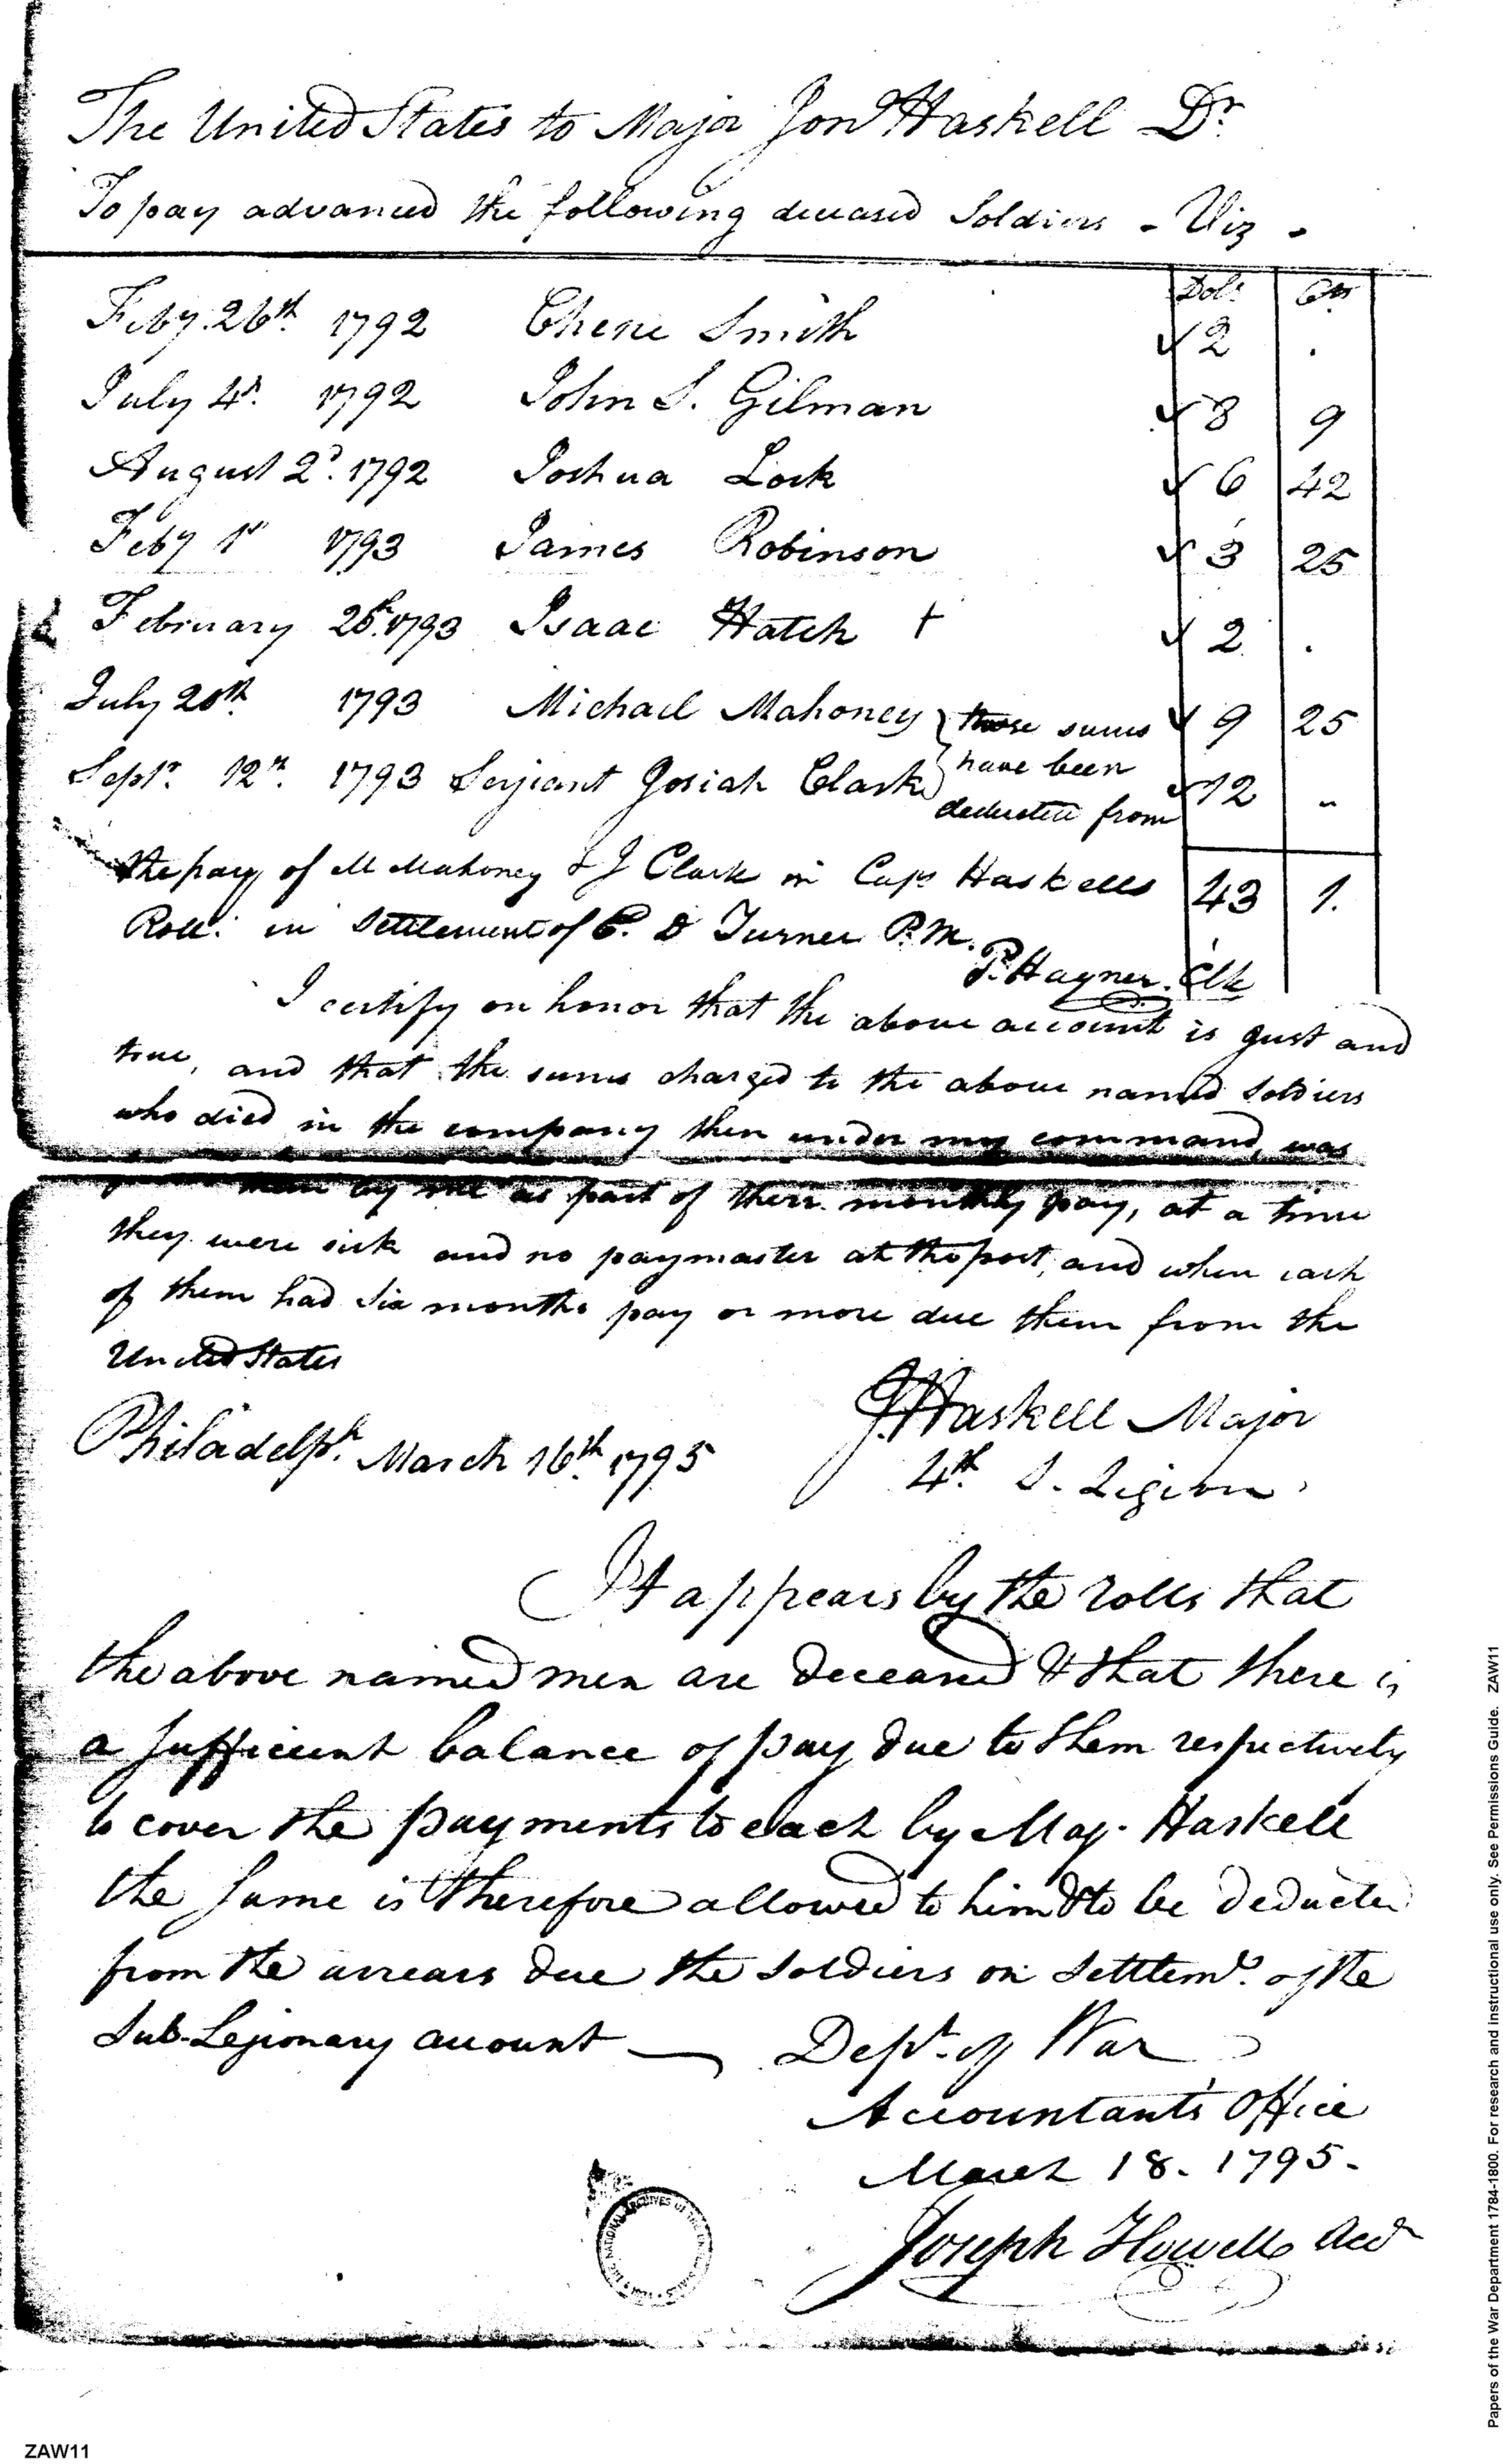 The United States to Major Jon Haskell Dr
To pay advanced the following deceased Soldiers - Viz -
Dols Cts
Feby. 26th 1792 Smith 2 .
July 4th. 1792 John S. Gilman 8 9
August 2d. 1792 Joshua Lock 6 42
Feby 1st 1793 James Robinson 3 25
February 25th. 1793 Isaac Hatch + 2 .
July 20th. 1793 Michael Mahoney } these sums 9 25
have been
Septr. 12th. 1793 Serjeant Josiah Clark 12 "
deducted from
the pay of M Mahoney & J Clark in Capt Haskells 43 1.
Roll: in Settlement of E. D Turner P.M.
P. Hagner. Clk
I certify on honor that the above account is just and
true, and that the sums charged to the above named Soldiers
who died in the company then under my command, was
them by me as part of their monthly pay, at a time
they were sick and no paymaster at the post, and when each
of them had six months pay or more due them from the
United States
J Haskell Major
Philadelph. March 16th. 1795
4th. S. Legion.
It appears by the rolls that
the above named men are deceased & that there is
a sufficient balance of pay due to them respectively
to cover the payments to each by Maj. Haskell
the same is therefore allowed to him & to be deducted
from the arrears due the Soldiers on Settlemt. of the
Sub-Legionary account — Dept. of War
Accountants Office
March 18. 1795.
Joseph Howell Acct
Papers of the War Department 1784-1800. For research and instructional use only. See Permissions Guide. ZAW11
ZAW11